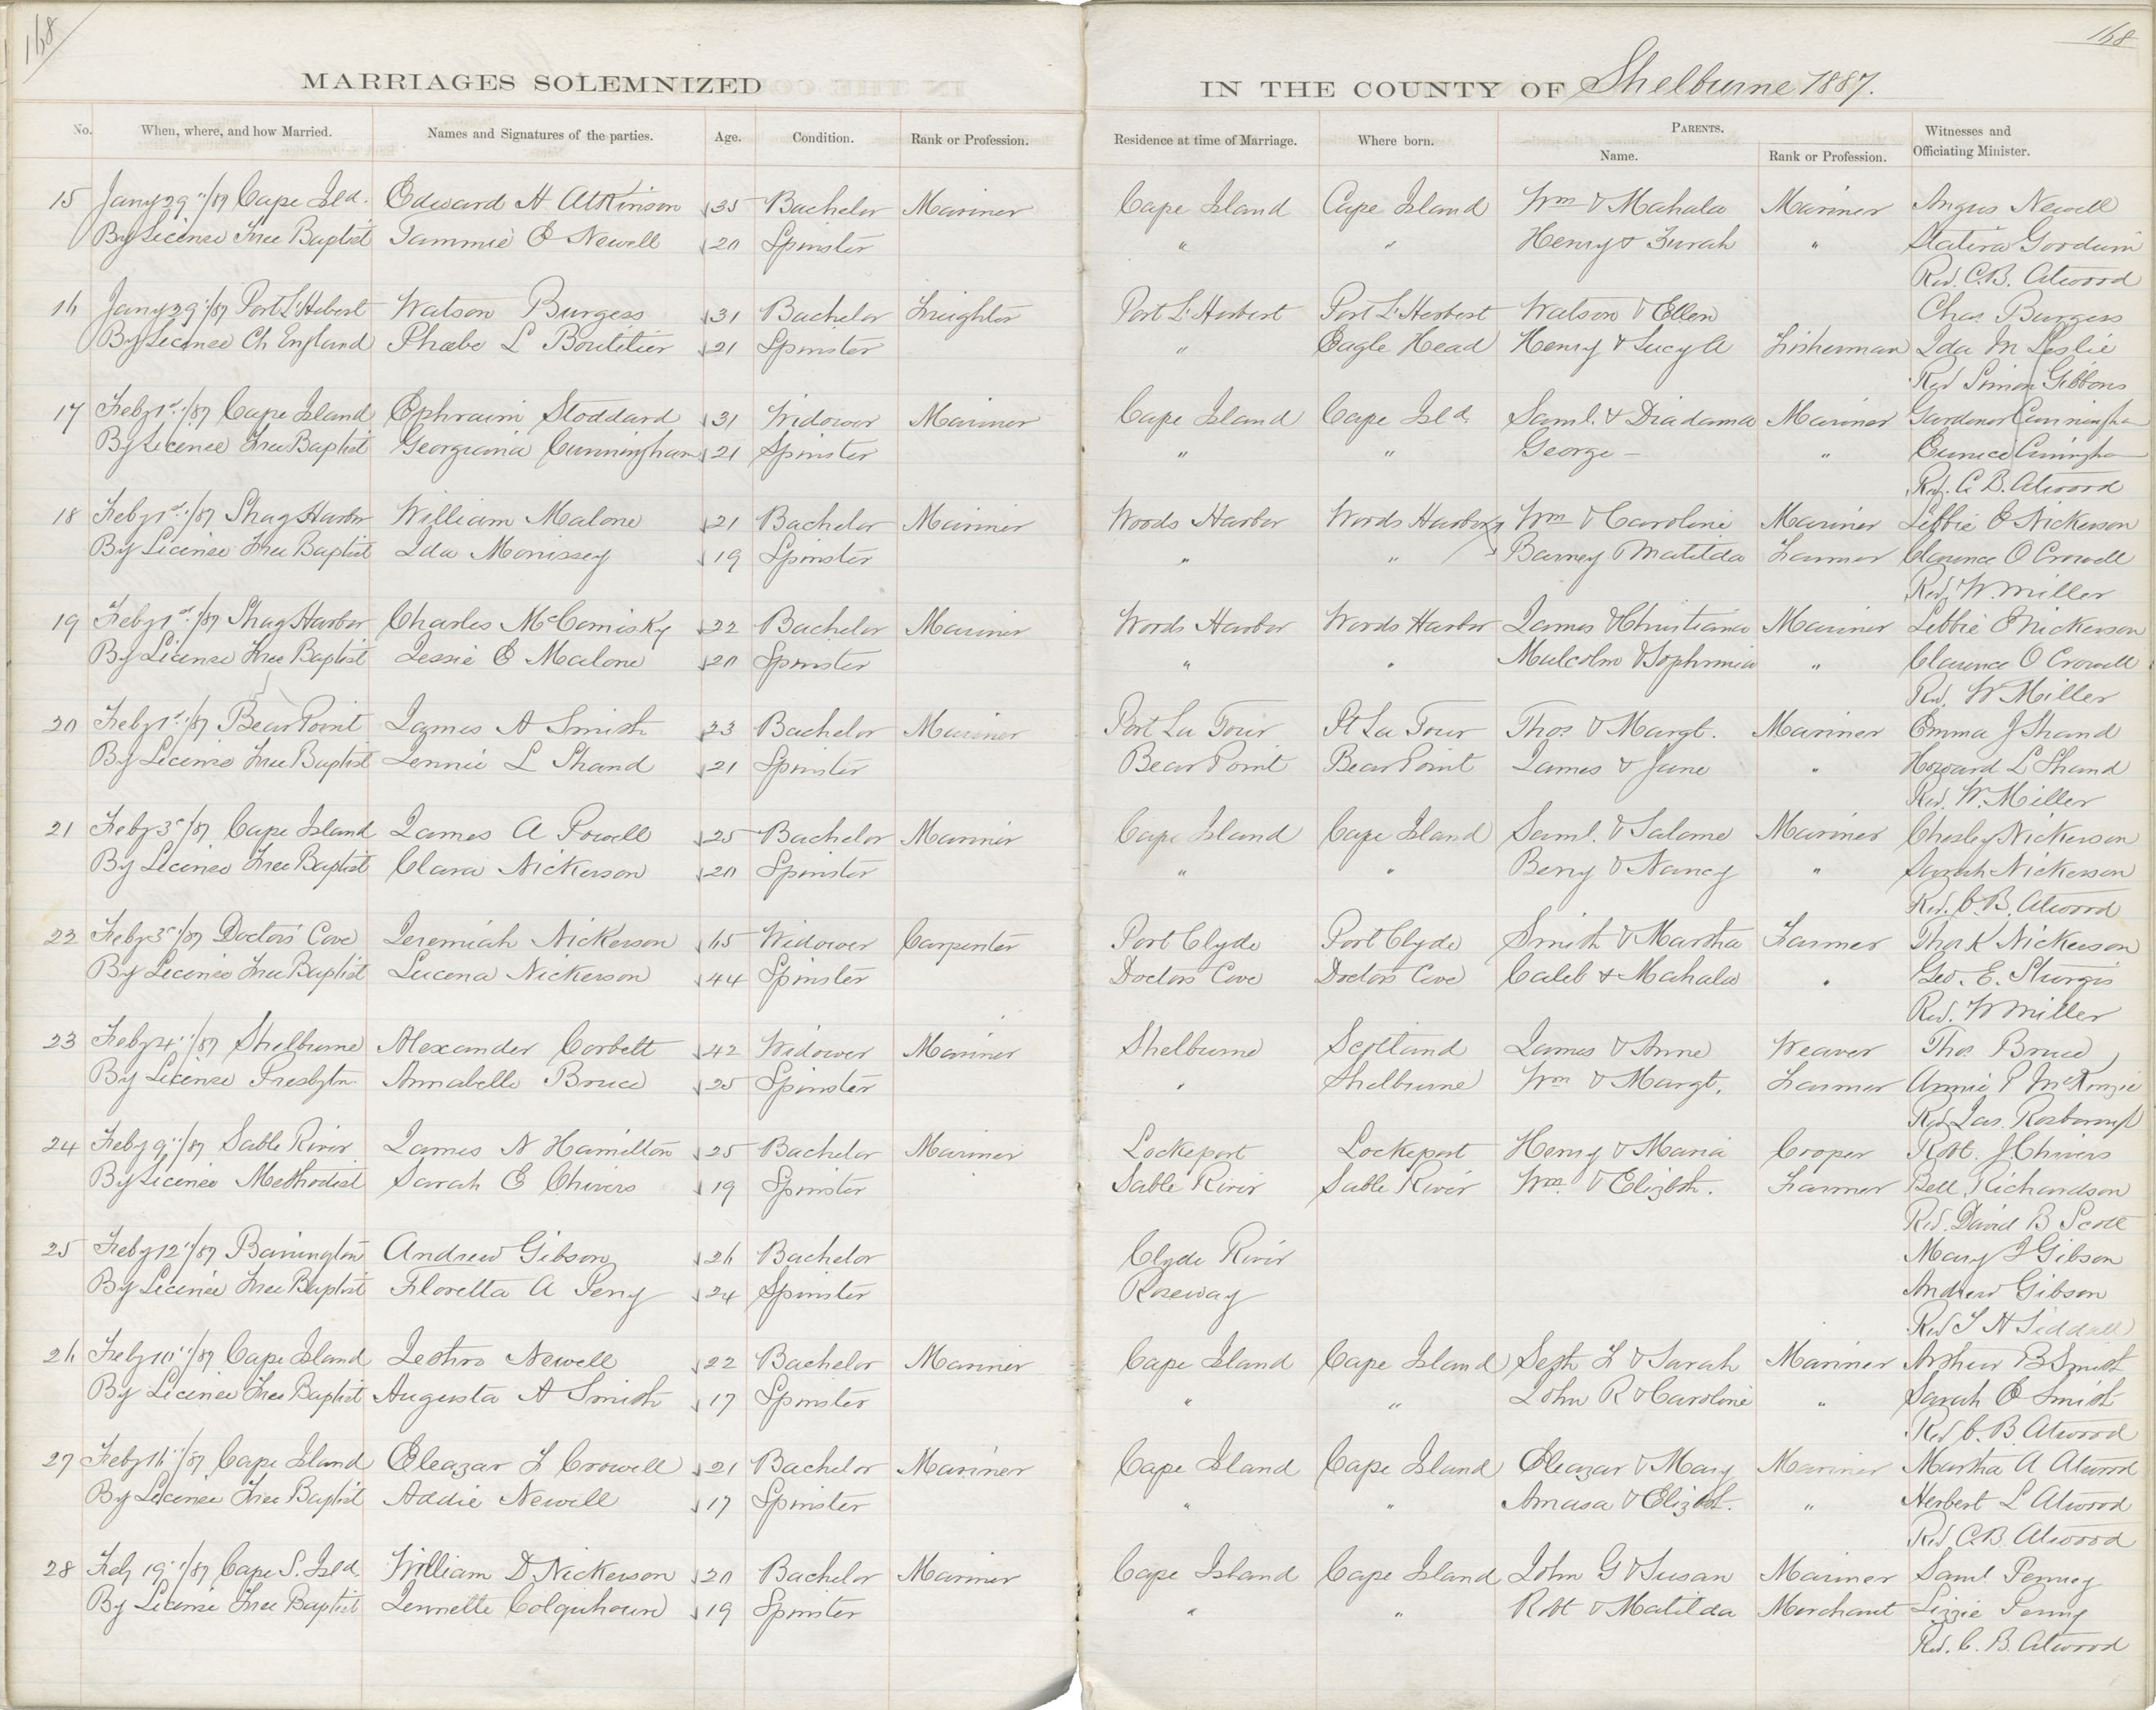 168
168
MARRIAGES SOLEMNIZED IN THE COUNTY OF Shelburne 1887.
No. When, where, and how Married. Names and Signatures of the parties. Age. Condition. Rank or Profession. Residence at time of Marriage. Where born. PARENTS. Name. Rank or Profession. Witnesses and Officiating Minister.
15 Jany 29"/87 Cape Isld. Edward H Atkinson 35 Bachelor Mariner Cape Island Cape Island Wm & Mahala Mariner Angus Newell
By License Free Baptist Tammie E Newell 20 Spinster " " Henry & Zurah " Statira Goodwin
Rev. C.B. Atwood
16 Jany 29"/87 Port L'Hebert Watson Burgess 31 Bachelor Freighter Port L'Herbert Port L'Herbert Watson & Ellen Chas. Burgess
By License Ch England Phœbe L Boutilier 21 Spinster " Eagle Head Henry & Lucy A Fisherman Ida M Leslie
Rev Simon Gibbons
17 Feby 1st/87 Cape Island Ephraim Stoddard 31 Widower Mariner Cape Island Cape Isld Saml. & Diadama Mariner Gardener Cunningham
By License Free Baptist Georgiania Cunningham 21 Spinster " " George - " Eunice
Rev. C. B. Atwood
18 Feby 1st/87 Shag Harbor William Malone 21 Bachelor Mariner Woods Harbor Woods Harbor Wm & Caroline Mariner Libbie E Nickerson
By License Free Baptist Ida Morrissey 19 Spinster " " Barney Matilda Farmer Clarence O Crowell
Rev. W. Miller
19 Feby 1st/87 Shag Harbor Charles McComisky 22 Bachelor Mariner Woods Harbor Woods Harbor James & Christiana Mariner Libbie E Nickerson
By License Free Baptist Jessie E Malone 20 Spinster " " Malcolm & Sophronia " Clarence O Crowell
Rev. W Miller
20 Feby 1st/87 Bear Point James A Smith 23 Bachelor Mariner Port La Tour Pt La Tour Thos. & Margt. Mariner Emma J Shand
By License Free Baptist Jennie L Shand 21 Spinster Bear Point Bear Point James & Jane " Howard L Shand
Rev. W. Miller
21 Feby 3d/87 Cape Island James A Powell 25 Bachelor Mariner Cape Island Cape Island Saml. & Salome Mariner Chesley Nickerson
By License Free Baptist Clara Nickerson 20 Spinster " " & Nancy " Sarah Nickerson
Rev. C. B. Atwood
22 Feby 3d/87 Doctors Cove Jeremiah Nickerson 65 Widower Carpenter Port Clyde Port Clyde Smith & Martha Farmer Thos K Nickerson
By License Free Baptist Lucena Nickerson 44 Spinster Doctors Cove Doctors Cove Caleb & Mahala " Geo. E. Sturgis
Rev. W Miller
23 Feby 4"/87 Shelburne Alexander Corbett 42 Widower Mariner Shelburne Scotland James & Anne Weaver Thos Bruce
By License Presbytn. Annabelle Bruce 25 Spinster " Shelburne Wm & Margt. Farmer Annie P McKenzie
Rev Jas. Rosborough
24 Feby 9"/87 Sable River James N Hamilton 25 Bachelor Mariner Lockeport Lockeport Henry & Maria Cooper Robt. J. Chivers
By License Methodist Sarah E Chivers 19 Spinster Sable River Sable River Wm. & Elizbth. Farmer Bell Richardson
Rev. David B Scott
25 Feby 12"/87 Barrington Andrew Gibson 26 Bachelor Clyde River Mary J Gibson
By License Free Baptist Floretta A Perry 24 Spinster Roseway Andrew Gibson
Rev T H Siddall
26 Feby 10"/87 Cape Island Jethro Newell 22 Bachelor Mariner Cape Island Cape Island Seth & Sarah Mariner Arthur B Smith
By License Free Baptist Augusta A Smith 17 Spinster " " John R & Caroline " Sarah E Smith
Rev C. B. Atwood
27 Feby 16"/87 Cape Island Eleazar F Crowell 21 Bachelor Mariner Cape Island Cape Island Eleazar & Mary Mariner Martha A Atwood
By License Free Baptist Addie Newell 17 Spinster " " Amasa & Elizbt. " Herbert L Atwood
Rev C.B. Atwood
28 Feby 19"/87 Cape S. Isld William D Nickerson 20 Bachelor Mariner Cape Island Cape Island John G & Susan Mariner Saml Penney
By License Free Baptist Jennette Colquhoun 19 Spinster " " Robt & Matilda Merchant Lizzie Penny
Rev. C. B. Atwood